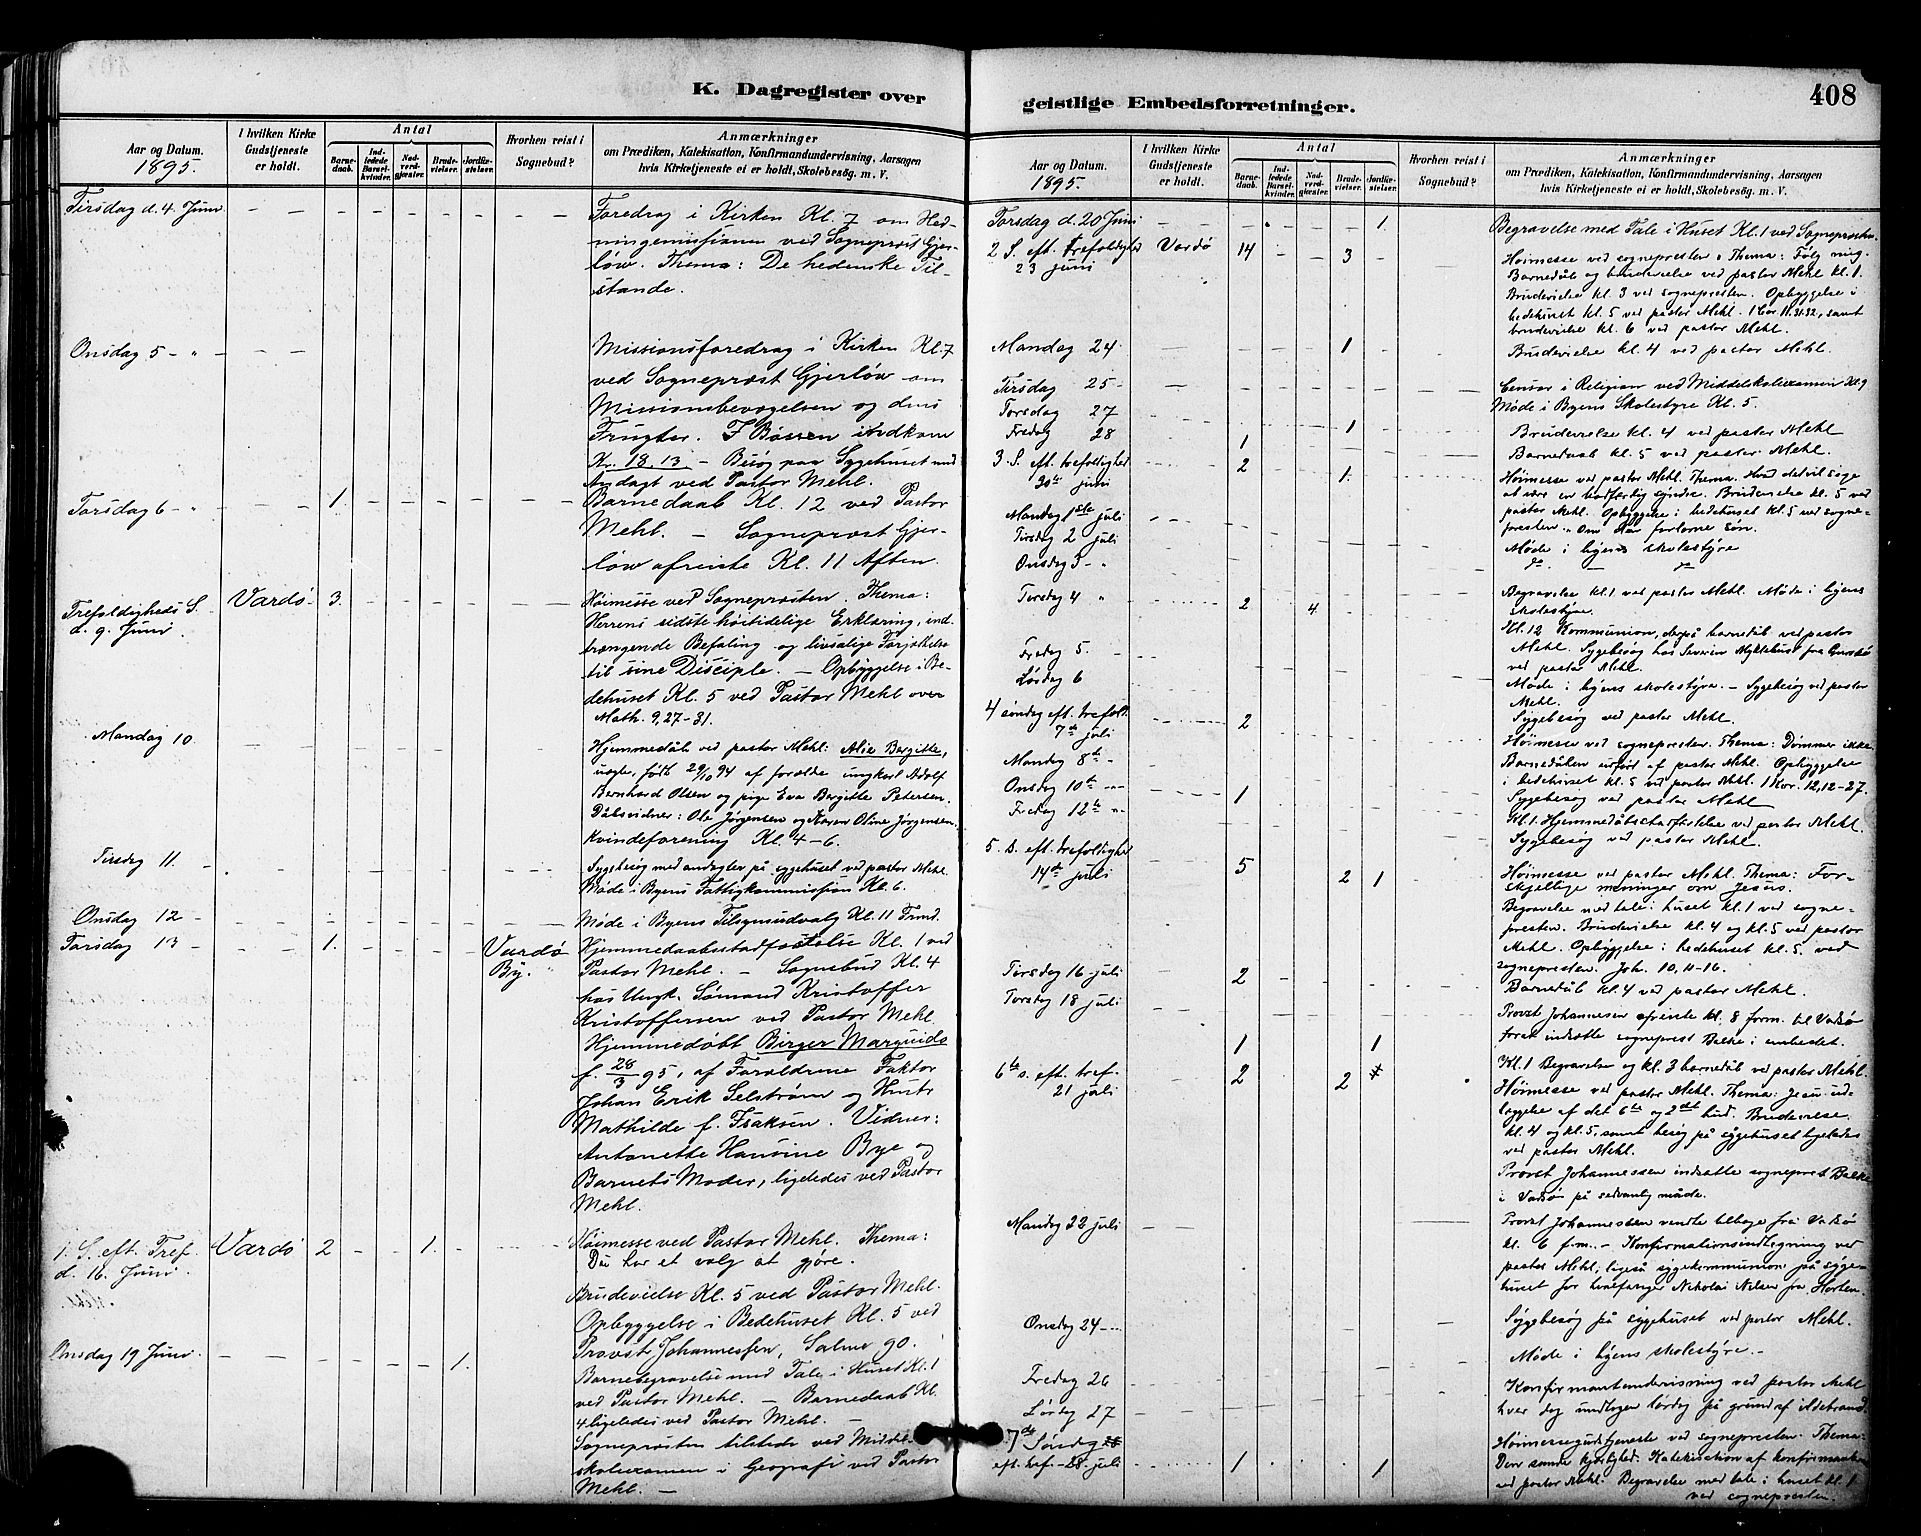 K. Dagregister over
geistlige Embedsforretninger.
408
Aar og Datum.
1895.
I hvilken Kirke
Gudstjeneste
er holdt.
Antal
Barne-
daab.
Ind-
ledede
Barsel-
kvinder.
Nad-
verd-
gjæster.
Brude-
vielser.
Jordfæ-
stelser.
Hvorhen reist i
Sognebud?
Anmærkninger
om Prædiken, Katekisation, Konfirmandundervisning, Aarsagen
hvis Kirketjeneste ei er holdt, Skolebesøg. m. V.
Tirsdag d. 4. Juni
Foredrag i Kirken Kl. 7 om Hed-
ningemissionen ved Sogneprest Gjer-
løw. Thema: De hedenske Til-
stande.
Onsdag 5 - "
Missionsforedrag i Kirken Kl. 7
ved Sogneprest Gjerløw om
Missionsbevægelsen og dens
Frugter. I Bøssen indkom
Kr. 18.13 - Besøg paa Sygehuset med
Andagt ved Pastor Mehl.
Torsdag 6 - " 1.
Barnedaab Kl. 12 ved Pastor
Mehl. - Sogneprest Gjer-
løw afreiste Kl. 11 Aften.
Trefoldigheds S. Vardø 3.
d. 9. Juni
Høimesse ved Sognepresten. Thema:
Herrens sidste høitidelige Erklæring, ind-
trængende Befaling og livsalige Forjættelse
til sine Disciple. - Opbyggelse i Be-
dehuset Kl. 5 ved Pastor Mehl over
Math. 9, 27-31.
Mandag 10
Hjemmedåb ved pastor Mehl: Alie Bergitte,
uægte, født 29/10 94 af forældre ungkarl Adolf
Bernhard Olsen og pige Eva Bergitte Petersen.
Dåbsvidner: Ole Jørgensen og Karen Oline Jørgensen.
Kvindeforening Kl. 4-6.
Tirsdag 11
Sygebesøg med andagter på sygehuset ved pastor Mehl.
Møde i Byens Fattigkommission Kl. 6.
Onsdag 12
Møde i Byens Tilsynsudvalg Kl. 11 Form.
Torsdag 13 1. Vardø
By.
Hjemmedaabsstadfæstelse Kl. 1 ved
Pastor Mehl. - Sognebud Kl. 4
hos Ungk. Sømand Kristoffer
Kristoffersen ved Pastor Mehl.
Hjemmedøbt Birger Marquids
f. 28/3 95, af Forældrene Faktor
Johan Erik Selstrøm og Hustr.
Mathilde f. Isaksen. Vidner:
Antonette Hansine Bye og
Barnets Moder, ligeledes ved Pastor
Mehl.
1. S. eft. Tref. Vardø 2 1.
d. 16. Juni
Høimesse ved Pastor Mehl. Thema:
Du har et valg at gjøre.
Brudevielse Kl. 5 ved Pastor Mehl.
Opbyggelse i Bedehuset Kl. 5 ved
Provst Johannessen, Salme 90.
Onsdag 19 Juni 1.
Barnebegravelse med Tale i Huset Kl. 1
ved Pastor Mehl. - Barnedaab Kl.
4 ligeledes ved Pastor Mehl. -
Sognepresten tilstede ved Middel-
skoleexamen i Geografi ved Pastor
Mehl. -
Aar og Datum.
1895.
I hvilken Kirke
Gudstjeneste
er holdt.
Antal
Barne-
daab.
Ind-
ledede
Barsel-
kvinder.
Nad-
verd-
gjæster.
Brude-
vielser.
Jordfæ-
stelser.
Hvorhen reist i
Sognebud?
Anmærkninger
om Prædiken, Katekisation, Konfirmandundervisning, Aarsagen
hvis Kirketjeneste ei er holdt, Skolebesøg. m. V.
Torsdag d. 20 Juni 1.
Begravelse med Tale i Huset Kl. 1 ved Sognepresten.
2 S. eft. Trefoldighed Vardø 14 3
23 juni
Høimesse ved sognepresten. Thema: Følg mig.
Barnedåb og brudevielse ved pastor Mehl kl. 1.
Brudevielse kl. 3 ved sognepresten. Opbyggelse i
bedehuset kl. 5 ved pastor Mehl. 1 Cor 11.31.32, samt
brudevielse kl. 6 ved pastor Mehl.
Mandag 24 1
Brudevielse kl. 4 ved pastor Mehl.
Tirsdag 25
Censor i Religion ved Middelskoleexamen Kl. 9
Torsdag 27
Møde i Byens Skolestyre Kl. 5.
Fredag 28 1 1
Brudevielse kl. 4 ved pastor Mehl
Barnedaab kl. 5 ved pastor Mehl.
3. S. eft. trefoldighed 2 1.
30te juni
Høimesse ved pastor Mehl. Thema: Hvad det vil sige
at være en hodfærdig synder. Brudevielse kl. 5 ved
pastor Mehl. Opbyggelse i bedehuset kl. 5 ved sogne-
presten. "Om den forlorne søn.
Mandag 1ste juli
Møde i byens skolestyre
Tirsdag 2 juli
do. - do
Onsdag 3 - "
Begravelse kl. 1 ved pastor Mehl. Møde i byens
skolestyre.
Torsdag 4 " 2 4.
Kl. 12 Kommunion, derpå barnedåb ved pastor
Mehl. Sygebesøg hos Severin Myklebust fra
ved pastor Mehl.
Fredag 5.
Møde i byens skolestyre. - Sygebesøg ved pastor
Mehl.
Lørdag 6
Sygebesøg ved pastor Mehl.
4 søndag eft. trefold. 2
7de juli
Høimesse ved sognepresten. Thema: Dømmer ikke.
Barnedåben udført af pastor Mehl. Opbyggelse
i bedehuset kl. 5 ved pastor Mehl. 1 Kor. 12, 12-27.
Mandag 8de
Sygebesøg ved pastor Mehl
Onsdag 10de 1
Kl. 1. Hjemmedåbstadfæstelse ved pastor Mehl.
Fredag 12te
Sygebesøg ved pastor Mehl.
5. s. eft. trefoldighed 5 2 1
14de juli
Høimesse ved pastor Mehl. Thema: For-
skjellige meninger om Jesus.
Begravelse med tale i huset kl. 1 ved sogne-
presten. Brudevielse kl. 4 og kl. 5 ved pastor
Mehl. Opbyggelse i bedehuset kl. 5. ved
sognepresten. Joh. 10, 11-16.
Torsdag 16 juli 2
Barnedåb kl. 4 ved pastor Mehl.
Torsdag 18 juli
Provst Johannessen afreiste kl. 8 form. til Vadsø
foret indsætte sogneprest Balke i embedet.
1 1
Kl. 1 Begravelse og kl. 3 barnedåb ved pastor Mehl.
6te s. eft. tref. 2 2
21 juli
Høimesse ved pastor Mehl. Thema: Jesu ud-
læggelse af det 6te og 2det bud. Brudevielse
kl. 4 og kl. 5, samt besøg på sygehuset ligeledes
ved pastor Mehl.
Provst Johannessen indsatte sogneprest Balke
i Vadsø på sedvanlig måde.
Mandag 22 juli
Provst Johannessen vendte tilbage fra Vadsø
kl. 6 f.m. - Konfirmationsindtegning ved
pastor Mehl; ligeså sygekommunion på syge-
huset for hvalfanger Nikolai Nilsen fra Horten.
Onsdag 24
Sygebesøg på sygehuset ved pastor Mehl.
Møde i byens skolestyre. -
Fredag 26
Konfirmantundervisning ved pastor Mehl
Lørdag 27
hver dag undtagen lørdag på grund af ildebrand.
7de Søndag
eft. tref. - 28. juli 1 1
Høimessegudstjeneste ved sognepresten. Thema:
Den sande kjærlighed. Katekisation af konfirmanterne
ved pastor Mehl. Begravelse med tale i huset kl. 1
ved sognepresten.